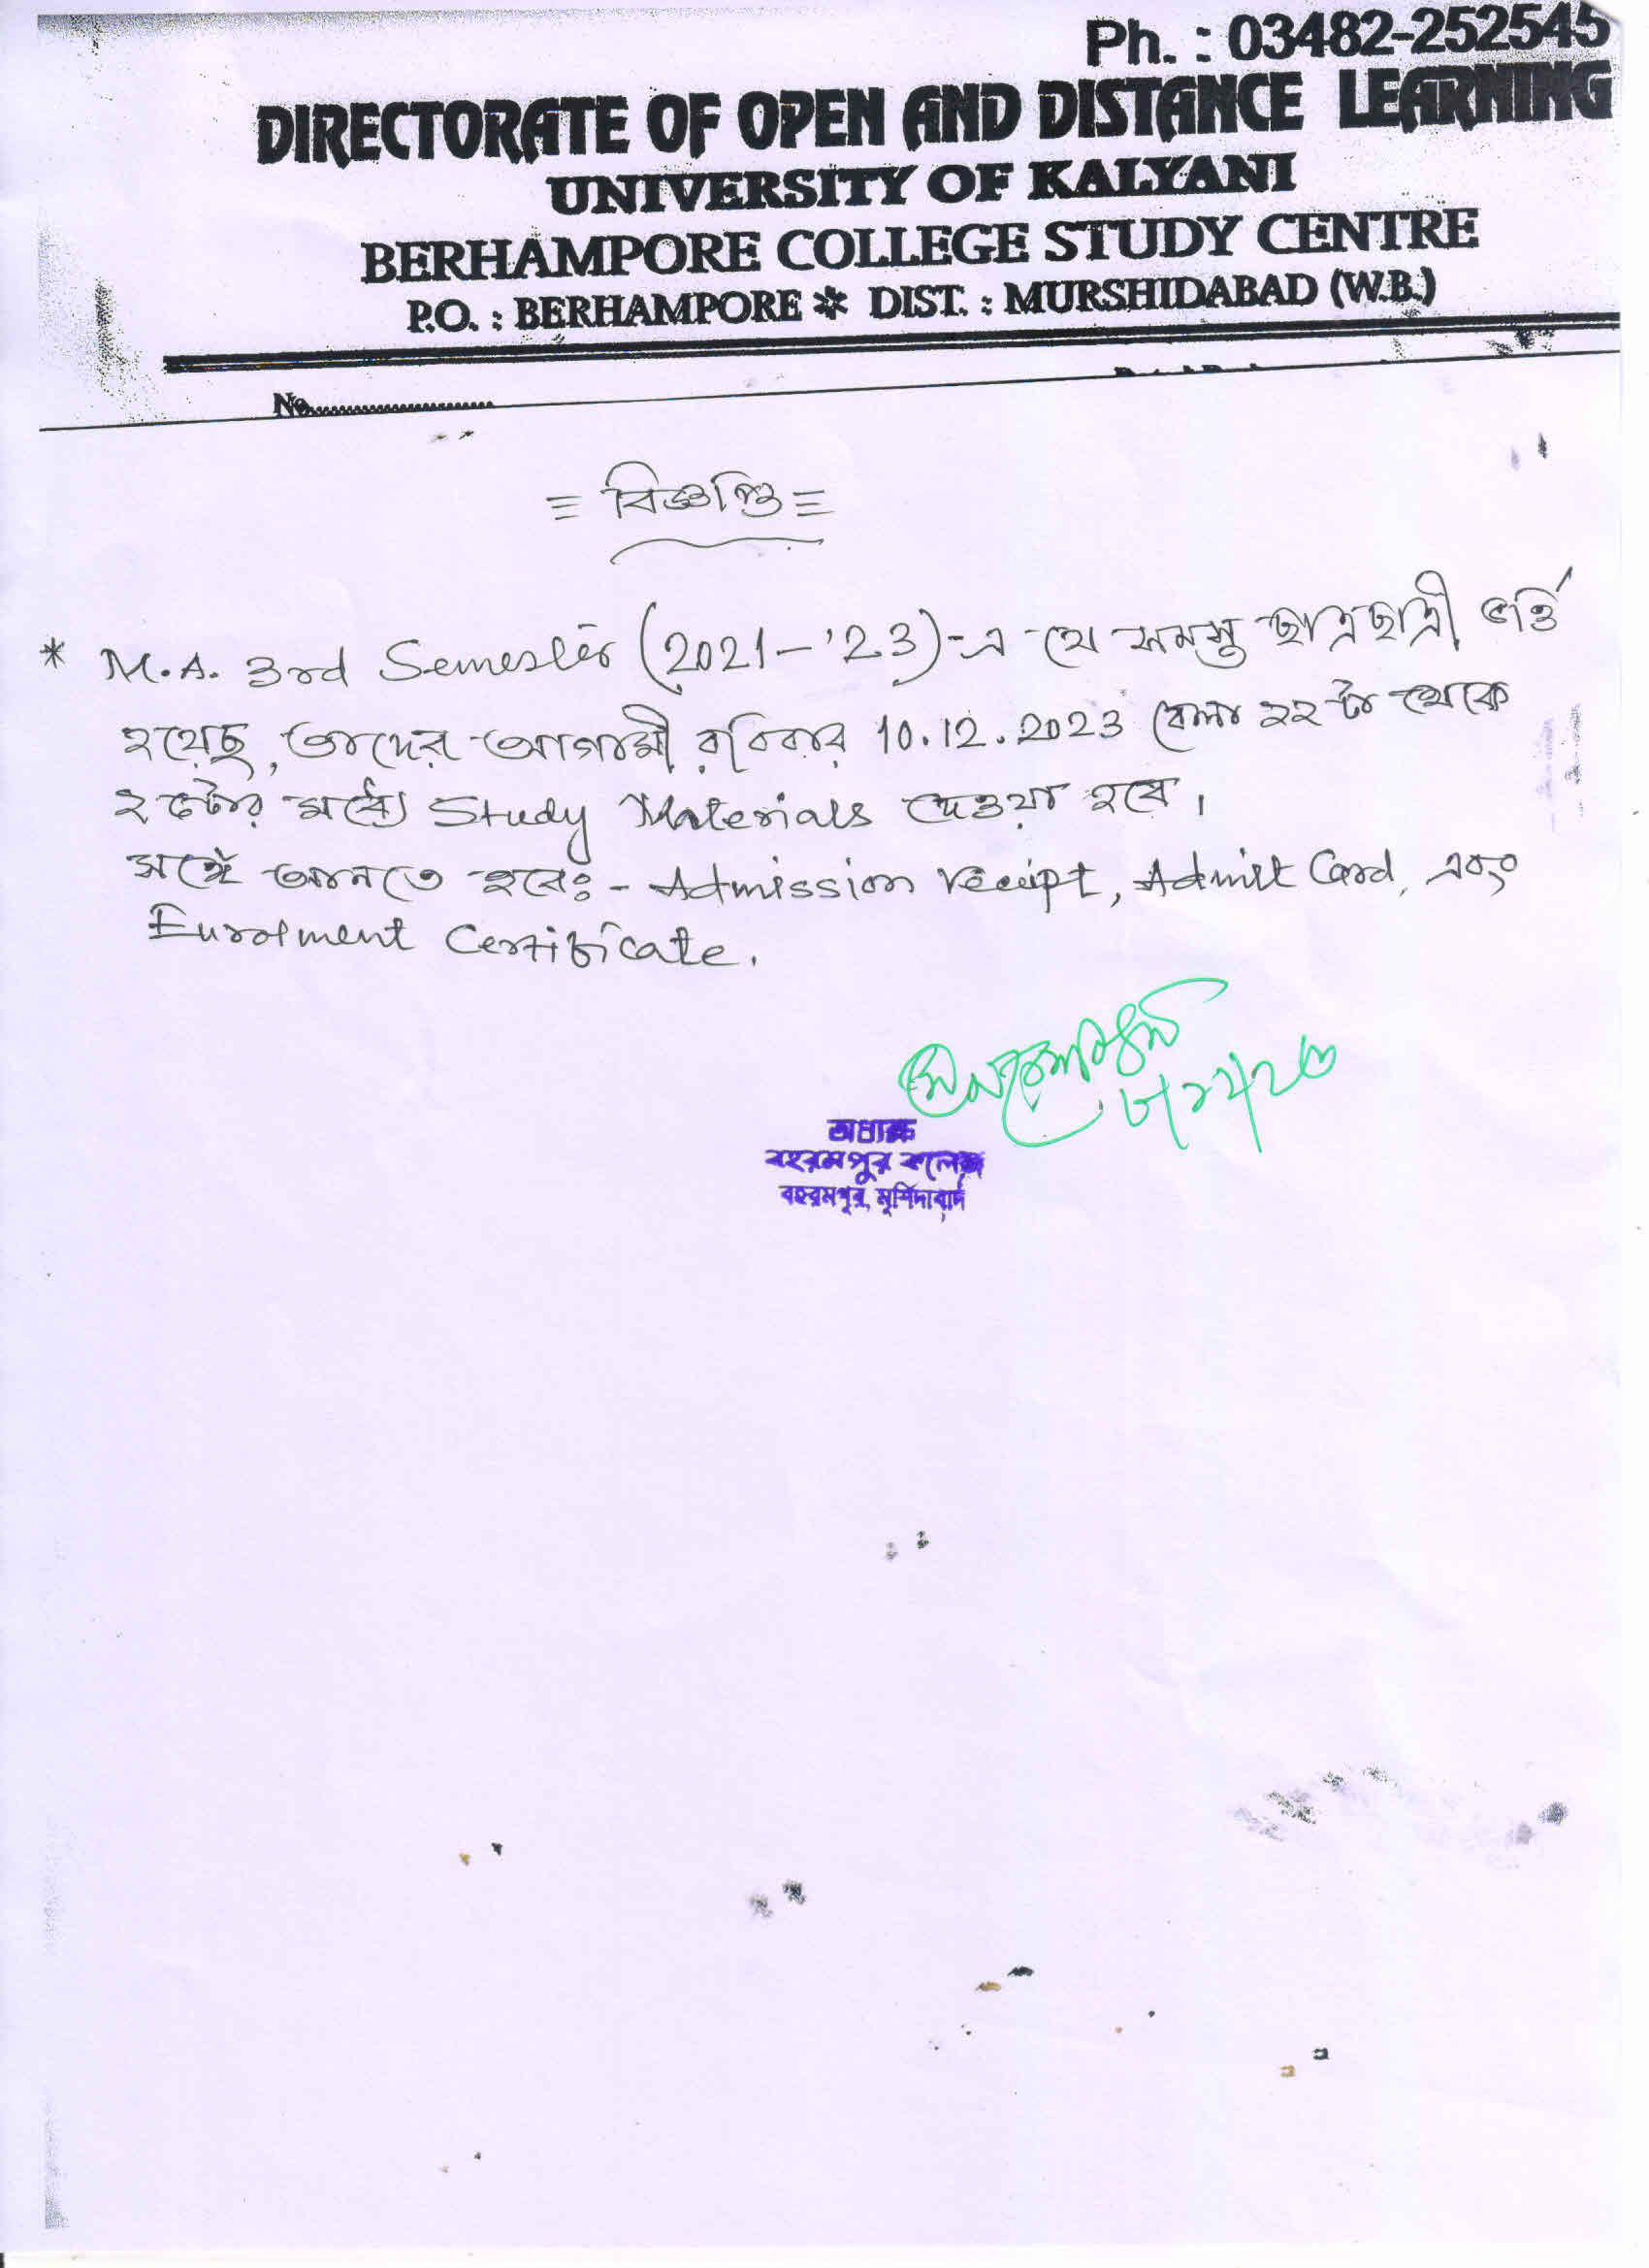 Ph. : 03482-252545
DIRECTORATE OF OPEN AND DISTANCE LEARNING
UNIVERSITY OF KALYANI
BERHAMPORE COLLEGE STUDY CENTRE
P.O. : BERHAMPORE * DIST. : MURSHIDABAD (W.B.)
No.........................
= বিজ্ঞপ্তি =
* M.A. 3rd Semester (2021-'23)-এ যে সমস্ত ছাত্রছাত্রী ভর্তি
হয়েছে, তাদের আগামী রবিবার 10.12.2023 বেলা টা থেকে
টোর মধ্যে Study Materials দেওয়া হবে।
সঙ্গে আনতে হবেঃ- Admission receipt, Admit Card, এবং
Enrolment Certificate.
৮/১২/২৩
অধ্যক্ষ
বহরমপুর কলেজ
বহরমপুর, মুর্শিদাবাদ